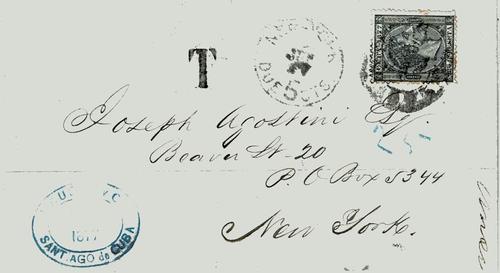 T
NEW YORK
DUE 5 CTS
Joseph Agostini
Beaver St - 20
P. O Box 5344
New York.
1877
SANTIAGO de CUBA